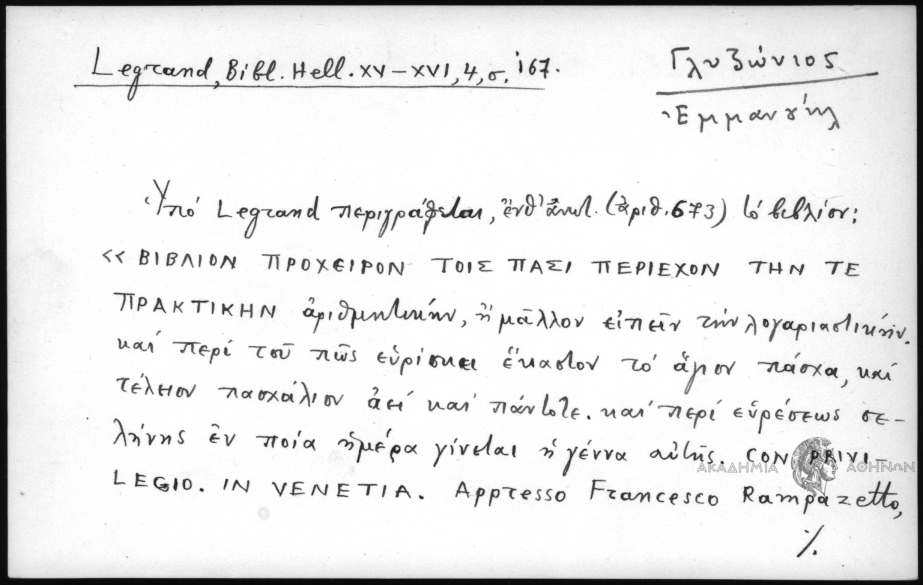 Legrand, Bibl. Hell. XV–XVI, 4, σ, 167.
Γλυζώνιος
Ἐμμανȣήλ
Ὑπό Legrand περιγράφεται, ἔνθ' ἀνωτ. (ἀριθ. 673) τό βιβλίον:
<< ΒΙΒΛΙΟΝ ΠΡΟΧΕΙΡΟΝ ΤΟΙΣ ΠΑΣΙ ΠΕΡΙΕΧΟΝ ΤΗΝ ΤΕ
ΠΡΑΚΤΙΚΗΝ ἀριθμητικήν, ἤ μᾶλλον εἰπεῖν τήν λογαριαστικήν.
καί περί τοῦ πῶς εὑρίσκει ἕκαστον τό ἅγιον πάσχα, καί
τέλειον πασχάλιον ἀεί καί πάντοτε. καί περί εὑρέσεως σε-
λήνης ἐν ποία ἡμέρα γίνεται ἡ γέννα αὐτῆς. CON PRIVI-
LEGIO. IN VENETIA. Appresso Francesco Rampazetto,
%.
ΑΚΑΔΗΜΙΑ ΑΘΗΝΩΝ